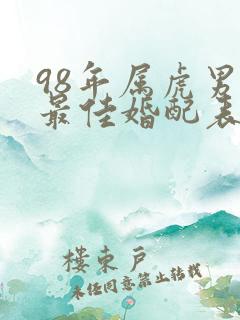 98年属虎男
最佳婚配表
楼東户
未经同意禁止转载